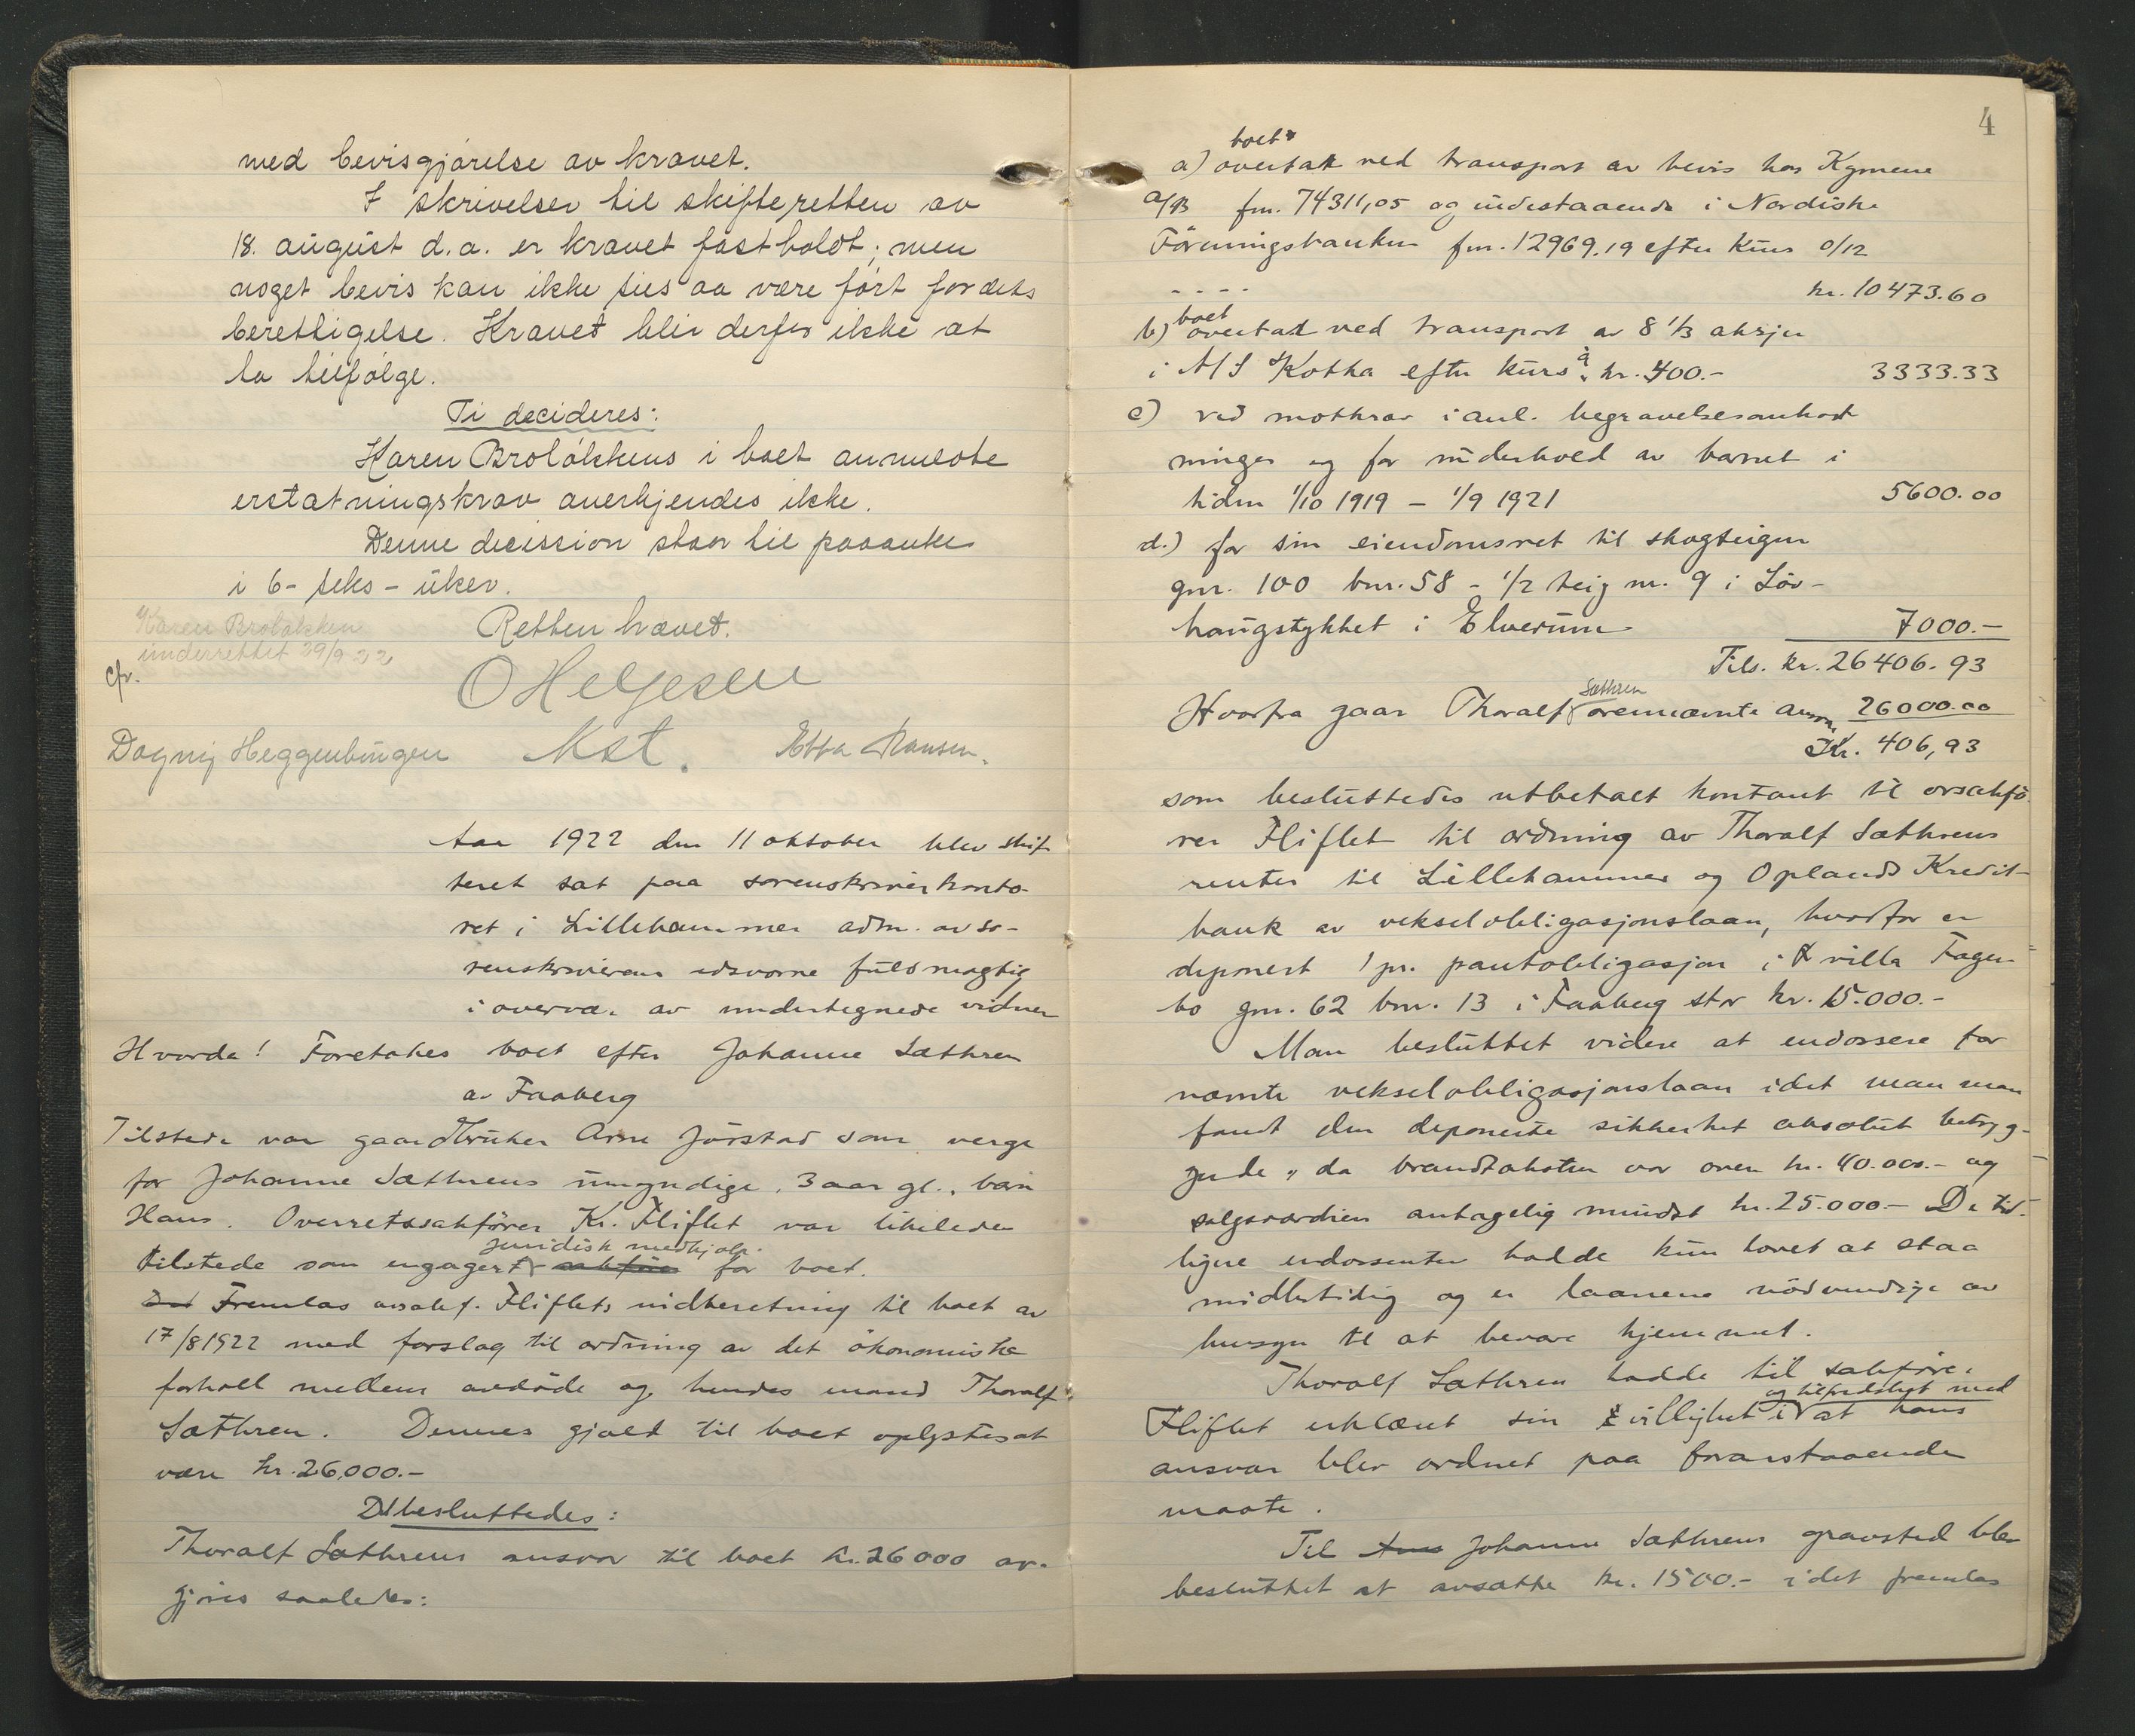 med bevisgjørelse av kravet.
I skrivelser til skifteretten av
18. august d.a. er kravet fastholdt; men
noget bevis kan ikke sies aa være ført for dets
berettigelse. Kravet blir derfor ikke at
ta tilfølge.
Ti decideres:
Karen Brolökkens i boet anmeldte
erstatningskrav anerkjendes ikke.
Denne decision staar til paaanke
i 6 - seks - uker.
Karen Broløkken
underrettet 29/9 22
Retten hævet.
O Helgesen
cfr.
Dagny Heggenhaugen Kst. Ebba Hansen.
Aar 1922 den 11 oktober blev skif
teret sat paa sorenskriverkonto-
ret i Lillehammer adm. av so-
renskriverens edsvorne fuldmægtig
i overvær av undertegnede vidner
Hvorda! Foretakes boet efter Johanne Sæthren
av Faaberg
Tilstede var gaardbruker Arne Jørstad som verge
for Johanne Sæthrens umyndige, 3 aar gl., barn
Hans. Overretssakfører Kr. Fliflet var likeledes
juridisk medhjælp.
tilstede som engagert sakfører for boet.
Det Fremlas orsakf. Fliflets indberetning til boet av
17/8 1922 med forslag til ordning av det økonomiske
forhold mellem avdøde og hendes mand Thoralf
Sæthren. Dennes gjæld til boet oplystes at
være kr. 26.000.-
Det besluttedes:
Thoralf Sæthrens ansvar til boet kr. 26000 av-
gjøres saaledes:
4
boet
a) overtat ved transport av bevis hos Kymene
A/B fm. 74311,05 og indestaaende i Nordiske
Föreningsbanken fm. 12969.19 efter kurs 0/12
- - - - kr. 10473.60
boet
b) overtat ved transport av 8 1/3 aksjer
i A/S Kotka efter kurs à kr. 400.- 3333.33
c) ved motkrav i anl. begravelsesomkost
ninger og for underhold av barnet i
tiden 1/10 1919 - 1/9 1921 5600.00
d.) for sin eiendomsret til skogteigen
gnr. 100 bnr. 58 - 1/2 teig nr. 9 i Löv-
haugstykket i Elverum 7000.-
Tils. kr. 26406.93
Sæthren
Hvorfra gaar Thoralf ovennævnte ansv. 26000.00
Kr. 406,93
som besluttedes utbetalt kontant til orsakfö
rer Fliflet til ordning av Thoralf Sæthrens
renter til Lillehammer og Oplands Kredit-
bank av vekselobligasjonslaan, hvorfor er
deponert 1 pr. pantobligasjon i villa Fager
bo gnr. 62 bnr. 13 i Faaberg stor kr. 15.000.-
Man besluttet videre at endossere for
nævnte vekselobligasjonslaan idet man man
fandt den deponerte sikkerhet absolut betryg-
gende, da brandtaksten var over kr. 40.000.- og
salgsværdien antagelig mindst kr. 25.000.- De tid-
ligere endossenter hadde kun lovet at staa
midlertidig og er laanene nødvendige av
hensyn til at bevare hjemmet.
Thoralf Sæthren hadde til sakfører
og tilfredshet med
Fliflet erklæret sin villighet i at hans
ansvar blev ordnet paa foranstaaende
maate.
Til Arne Johanne Sæthrens gravsted blev
besluttet at avsætte kr. 1500.- idet fremlas